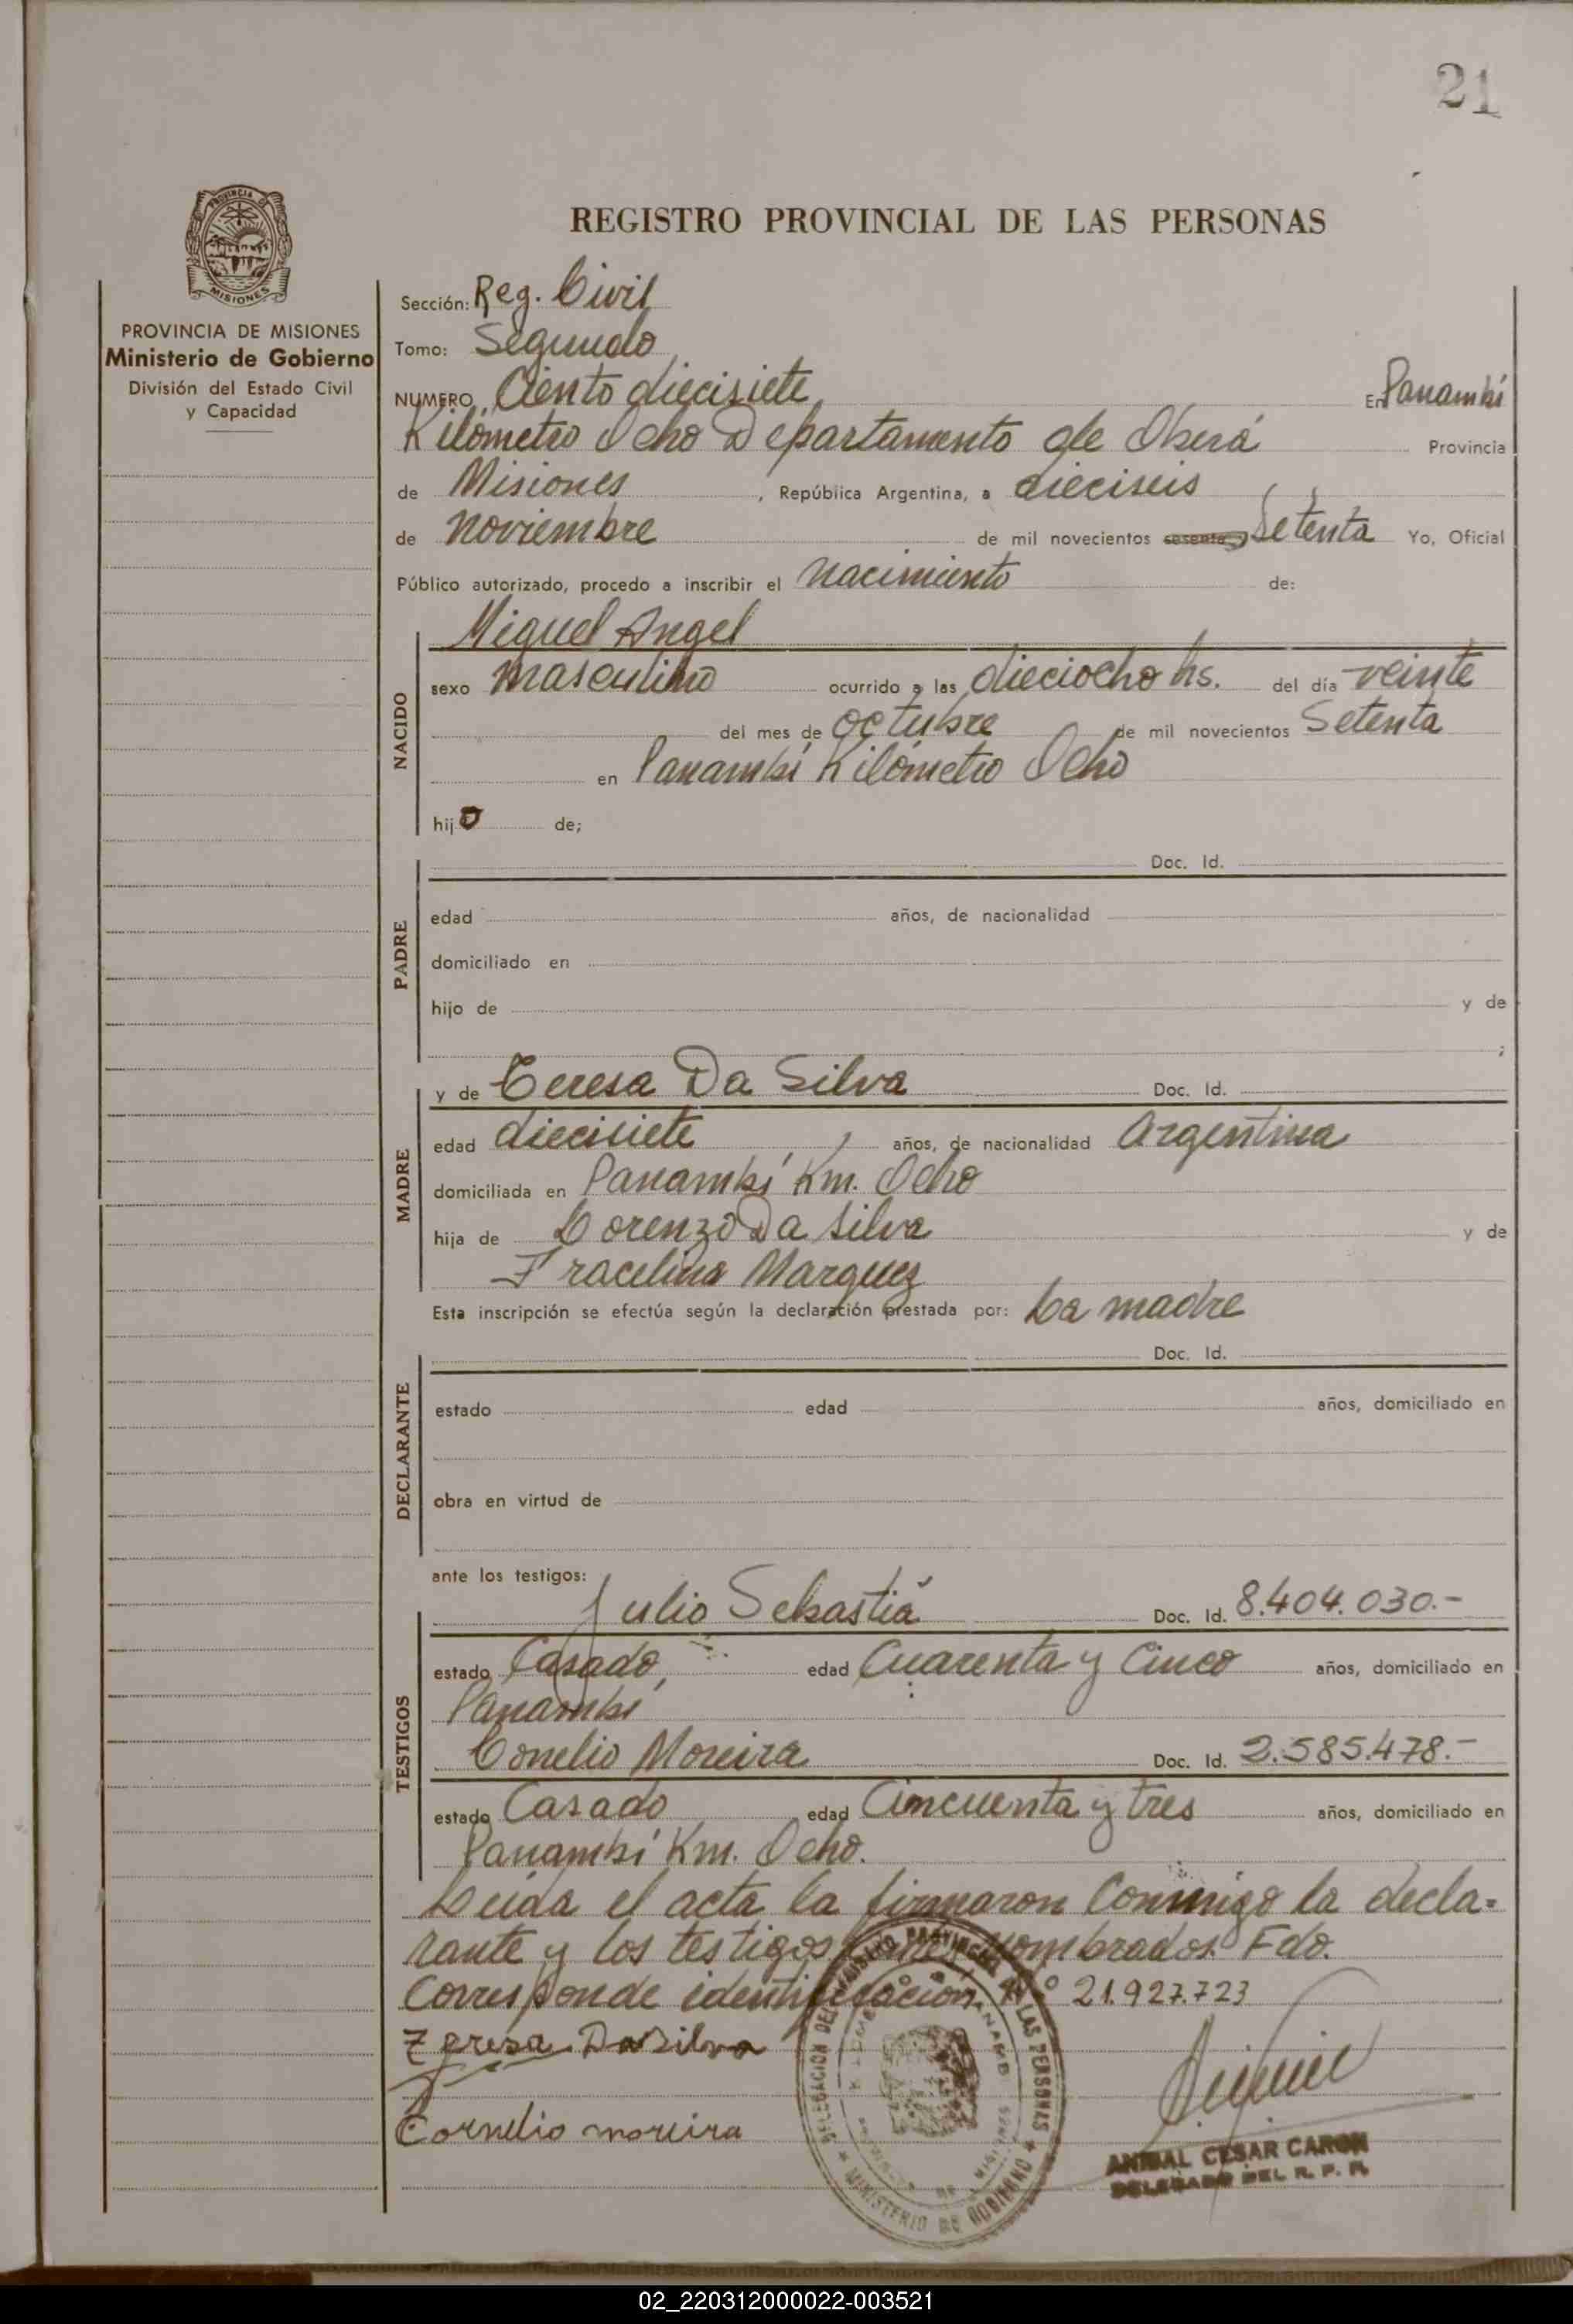 21
REGISTRO PROVINCIAL DE LAS PERSONAS
PROVINCIA
MISIONES
PROVINCIA DE MISIONES
Ministerio de Gobierno
División del Estado Civil
y Capacidad
Sección: Reg. Civil
Tomo: Segundo
NUMERO Ciento diecisiete En Panambí
Kilómetro Ocho Departamento de Oberá Provincia
de Misiones, República Argentina, a dieciseis
de noviembre de mil novecientos sesenta, Setenta Yo, Oficial
Público autorizado, procedo a inscribir el nacimiento de:
NACIDO
Miguel Angel
sexo masculino ocurrido a las dieciocho hs. del día veinte
del mes de octubre de mil novecientos Setenta
en Panambí Kilómetro Ocho
hijo de;
PADRE
Doc. Id.
edad años, de nacionalidad
domiciliado en
hijo de y de
;
MADRE
y de Teresa Da Silva Doc. Id.
edad diecisiete, años, de nacionalidad Argentina
domiciliada en Panambí Km. Ocho
hija de Lorenzo Da Silva y de
Fracelina Marquez
Esta inscripción se efectúa según la declaración prestada por: La madre
DECLARANTE
Doc. Id.
estado edad años, domiciliado en
obra en virtud de
ante los testigos:
TESTIGOS
Julio Sebastiá Doc. Id. 8.404.030.-
estado Casado, edad Cuarenta y Cinco años, domiciliado en
Panambí
Conelio Moreira Doc. Id. 2.585.478.-
estado Casado edad Cincuenta y tres años, domiciliado en
Panambí Km. Ocho.
Leída el acta la firmaron Conmigo la decla=
rante y los testigos nombrados. Fdo.
Corresponde identificación Nº 21.927.723
Teresa Da Silva
Cornelio moreira
DELEGACION DEL REGISTRO PROVINCIAL DE LAS PERSONAS
MINISTERIO DE GOBIERNO
ANIBAL CESAR CARON
DELEGADO DEL R. P. P.
02_220312000022-003521